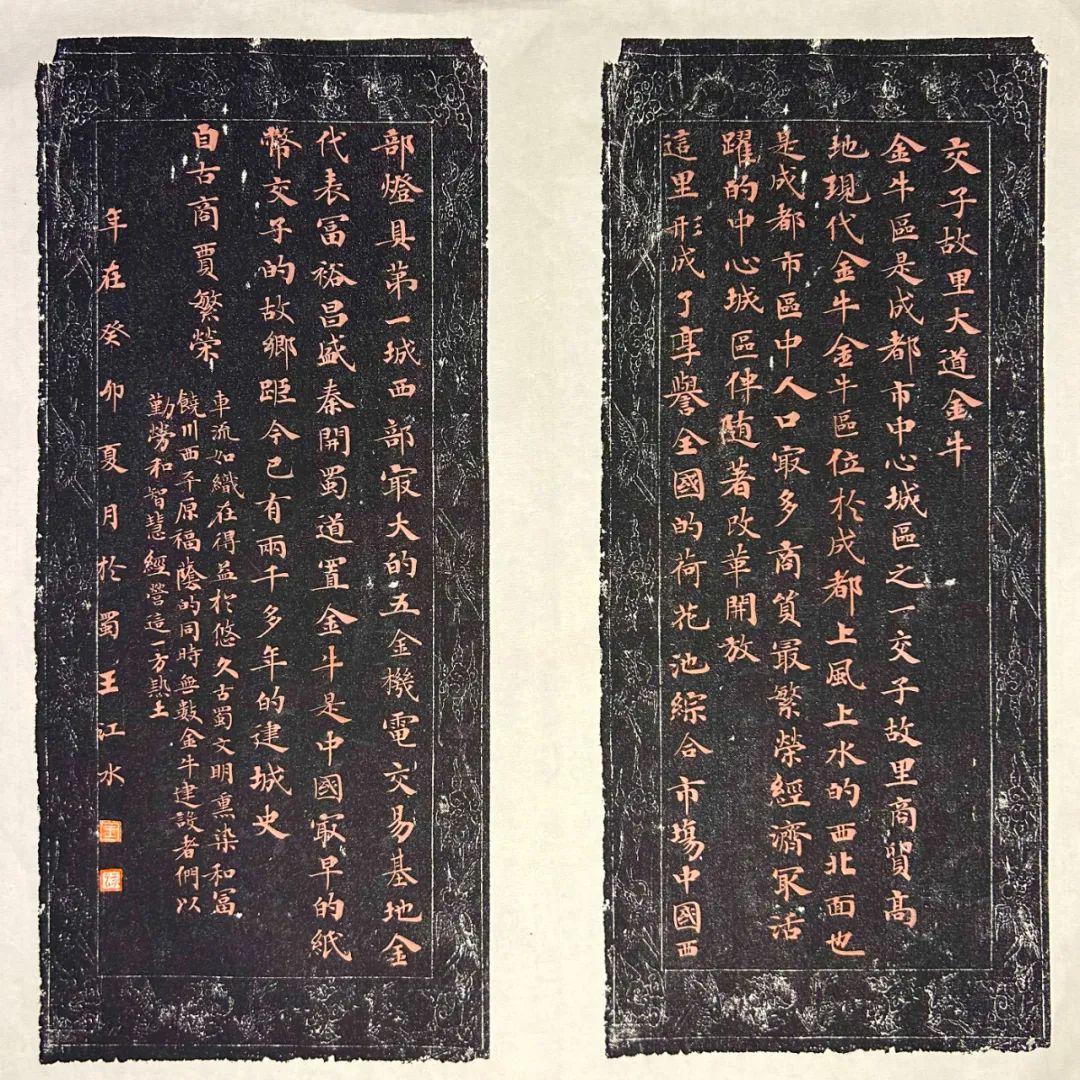 交子故里大道金牛
金牛區是成都市中心城區之一交子故里商貿高
地現代金牛金牛區位於成都上風上水的西北面也
是成都市區中人口㝡多商貿最繁榮經濟㝡活
躍的中心城區伴随著改革開放
這里形成了享譽全國的荷花池綜合市場中國西
部燈具第一城西部㝡大的五金機電交易基地金
代表冨裕昌盛秦開蜀道置金牛是中國㝡早的紙
幣交子的故鄉距今已有兩千多年的建城史
自古商賈繁榮
車流如織在得益於悠久古蜀文明熏染和冨
饒川西平原福蔭的同時無數金牛建設者們以
勤勞和智慧經營這一方熱土
年在癸卯夏月於蜀王江水